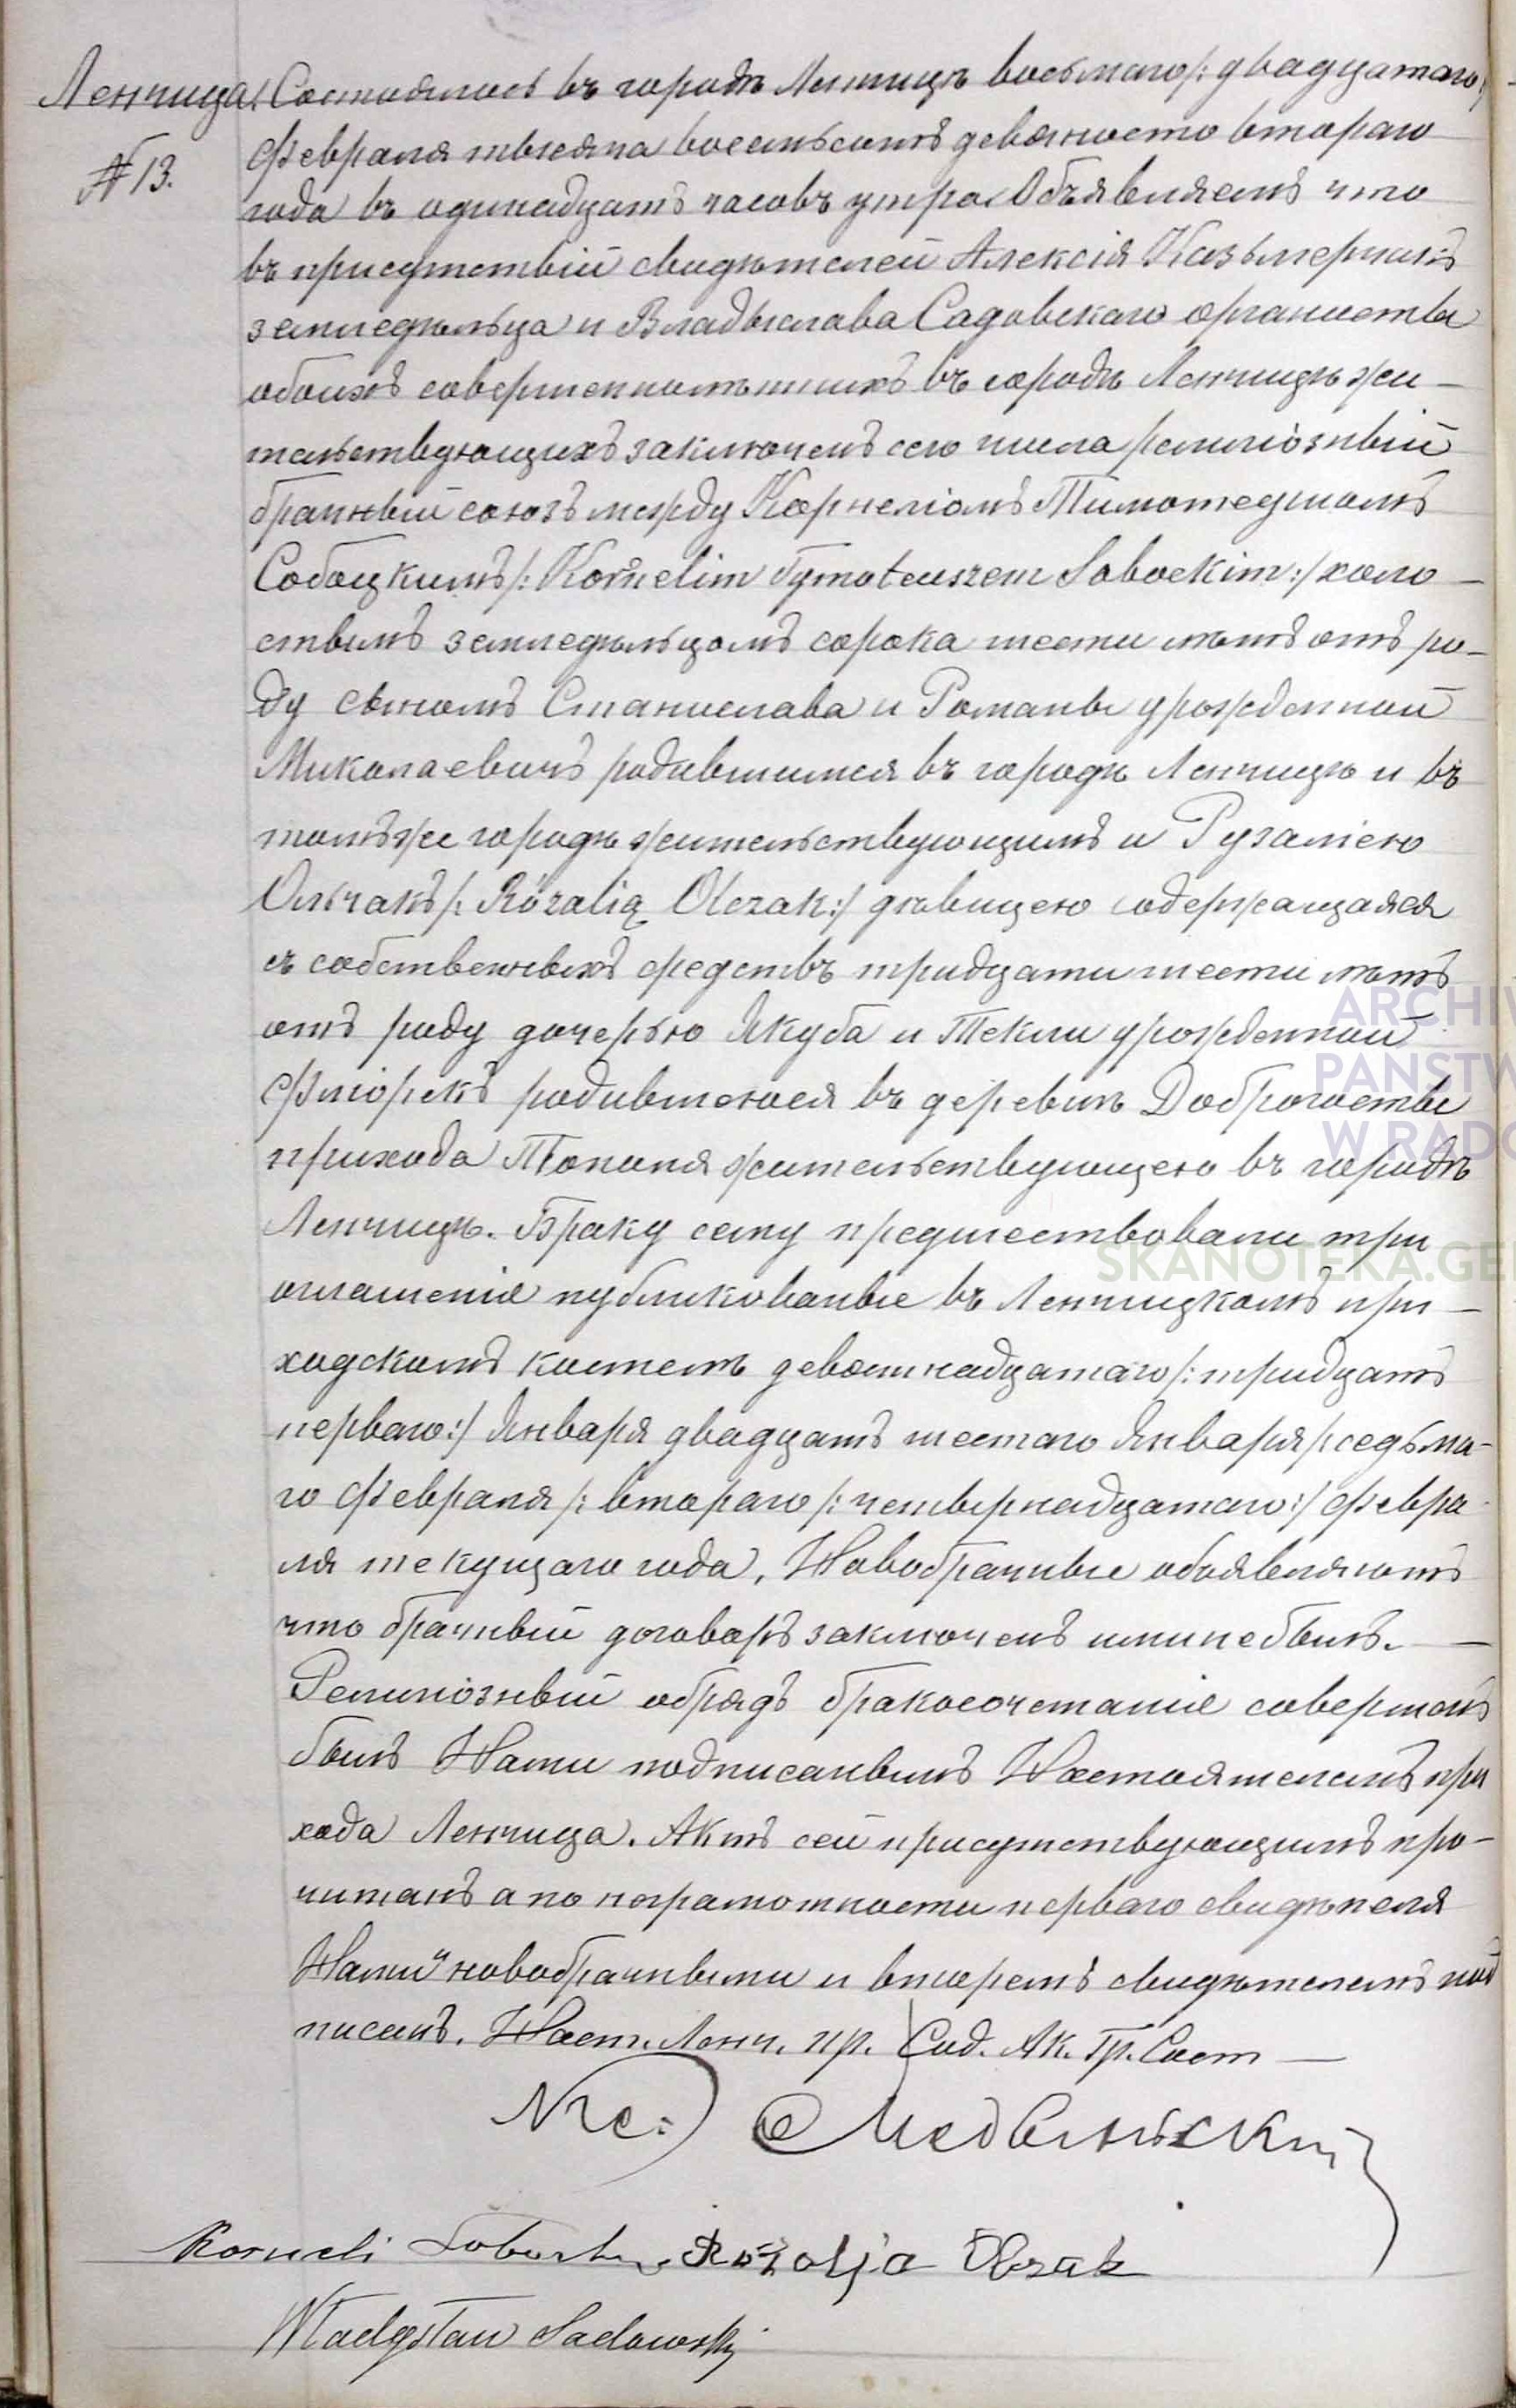 Ленчица.
№ 13.
Состоялось въ городѣ Ленчицѣ восьмаго /: двадцатаго
Февраля тысяча восемьсотъ девяносто втораго
года въ одинадцать часовъ утра. Объявляемъ что
въ присутствіи свидѣтелей Алексія Казьмерчакъ
земледѣльца и Владыслава Садовскаго органисты
обоихъ совершеннолѣтнихъ въ городѣ Ленчицѣ жи-
тельствующихъ заключенъ сего числа религіозный
брачный союзъ между Корнеліомъ Тимотеушомъ
Собоцкимъ /: Kornelim Tymoteuszem Sobockim :/ холо-
стымъ земледѣльцомъ сорока шести лѣтъ отъ ро-
ду сыномъ Станислава и Романы урожденной
Миколаевичъ родившимся въ городѣ Ленчицѣ и въ
томъ же городѣ жительствующимъ и Рузаліею
Ольчакъ /: Rózalią Olczak :/ дѣвицею содержащаяся
съ собственныхъ средствъ тридцати шести лѣтъ
отъ роду дочерью Якуба и Текли урожденной
Фліорекъ родившеюся въ деревнѣ Доброгосты
прихода Тополя жительствующею въ городѣ
Ленчицѣ. Браку сему предшествовали три
оглашенія публикованые въ Ленчицкомъ при-
ходскомъ костелѣ девятнадцатаго /: тридцать
перваго :/ Января двадцать шестаго Января /: седьма-
го Февраля /: втораго /: четвернадцатаго :/ Февра-
ля текущаго года. Новобрачные объявляютъ
что брачный договоръ заключенъ ими не былъ. —
Религіозный обрядъ бракосочетаніе совершонъ
былъ Нами подписанымъ Настоятелемъ при
хода Ленчица. Актъ сей присутствующимъ про-
читанъ а по нограмотности перваго свидѣтеля
Нами новобрачными и вторемъ свидѣтелемъ под
писанъ. Наст. Ленч. пр. Сод. Ак. Гр. Сост —
Korneli Sobocki Rózalja Olczak
Władysław Sadowski